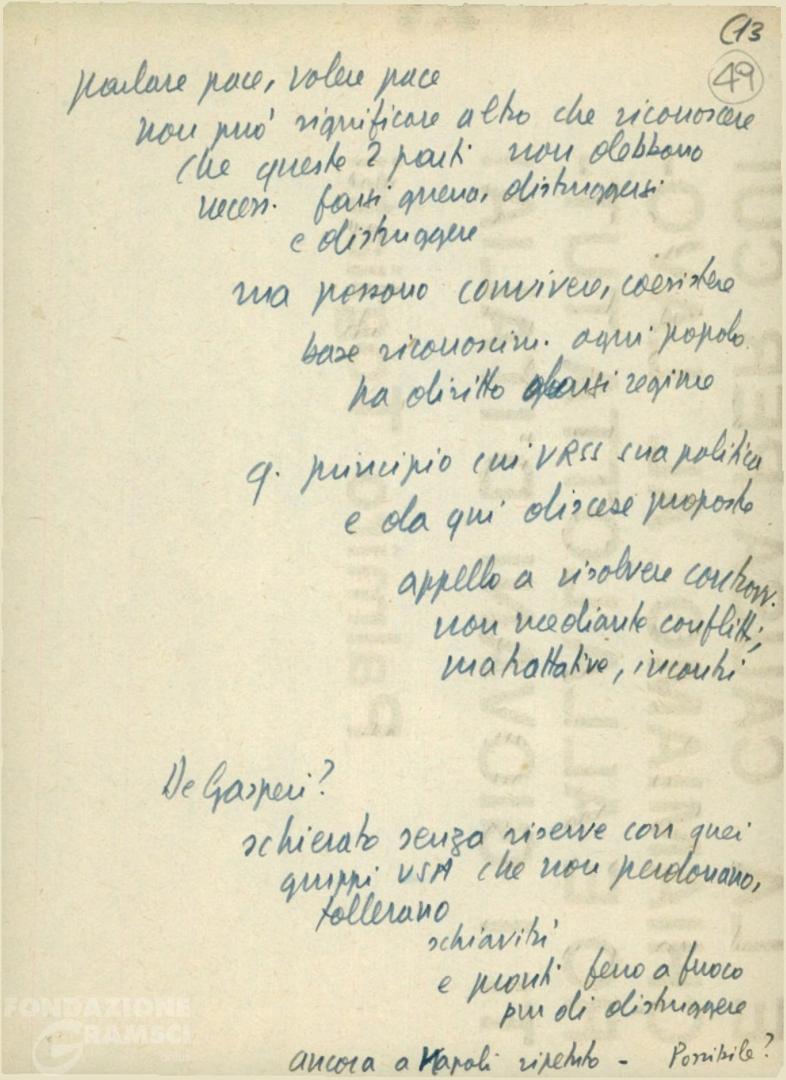 (13
49
parlare pace, volere pace
non può significare altro che riconoscere
che queste 2 parti non debbono
necess. farsi guerra, distruggersi
e distruggere
ma possono convivere, coesistere
base riconoscim. ogni popolo
ha diritto darsi regime
q. principio cui URSS sua politica
e da qui discese proposte
appello a risolvere controv.
non mediante conflitti,
ma trattative, incontri
De Gasperi?
schierato senza riserve con quei
gruppi USA che non perdonano,
tollerano
schiavitù
e pronti ferro a fuoco
pur di distruggere
ancora a Napoli ripetuto - Possibile?
FONDAZIONE
GRAMSCI